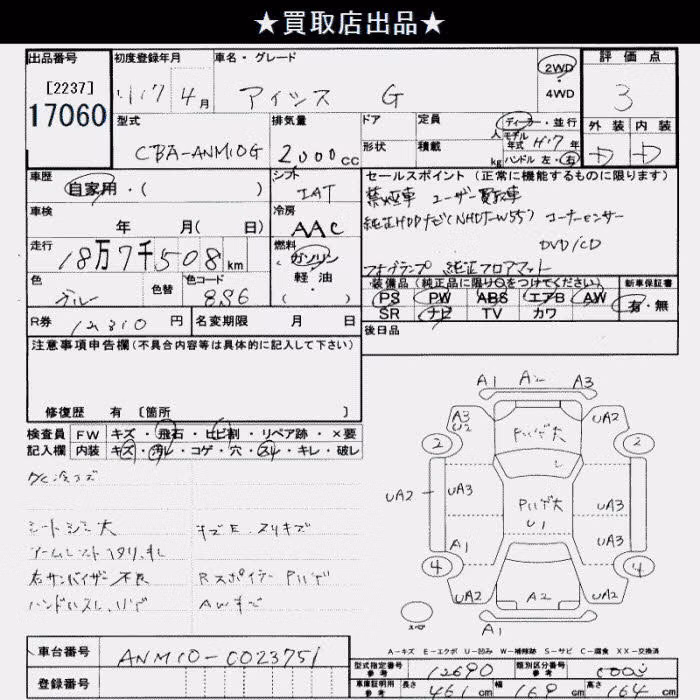 ★買取店出品★
出品番号 初度登録年月 車名・グレード 2WD ・ 4WD 評価点
[2237] H17 4月 アイシス G 3
17060 型式 排気量 ドア 定員 人 ディーラー・並行 外装 内装
CBA-ANM10G 2,000cc 形状 積載 kg モデル年式 H17年 ハンドル 左・右
車歴 シフト セールスポイント (正常に機能するものに限ります)
自家用・( ) IAT 禁煙車 ユーザー買取車
車検 年 月( 日) 冷房 AAC 純正HDDナビ(NHDT-W55) コーナーセンサー
走行 18万7千508km 燃料 ガソリン 軽油 ( ) DVD/CD
フォグランプ 純正フロアマット
色 ブルー 色替 色コード 8S6 装備品(純正品に限り○をつけてください) 新車保証書
PS PW ABS エアB AW 有・無
R券 12310円 名変期限 月 日 SR ナビ TV カワ
注意事項申告欄(不具合内容等は具体的に記入して下さい) 後日品
修復歴 有 [箇所 ]
検査員 FW キズ・飛石・ヒビ割・リペア跡・×要
記入欄 内装 キズ・汚レ・コゲ・穴・スレ・キレ・破レ
シートシミ大 キズE.スリキズ
右サンバイザー不良 Rスポイラー Pハゲ
AWキズ
A1 A2 A3
A3 U2 UA2
2 Pハゲ大 2
UA2 UA3 Pハゲ大 UA3
U1
A1 UA3
4 4
UA2 A2 UA2
スペア A1
A-キズ E-エクボ U-凹み W-補修跡 S-サビ C-腐食 XX-交換済
車台番号 ANM10-0023751
登録番号
型式指定番号 参考 12690 類別区分番号 参考
車庫証明用 参考 長さ 461cm 幅 169cm 高さ 164cm